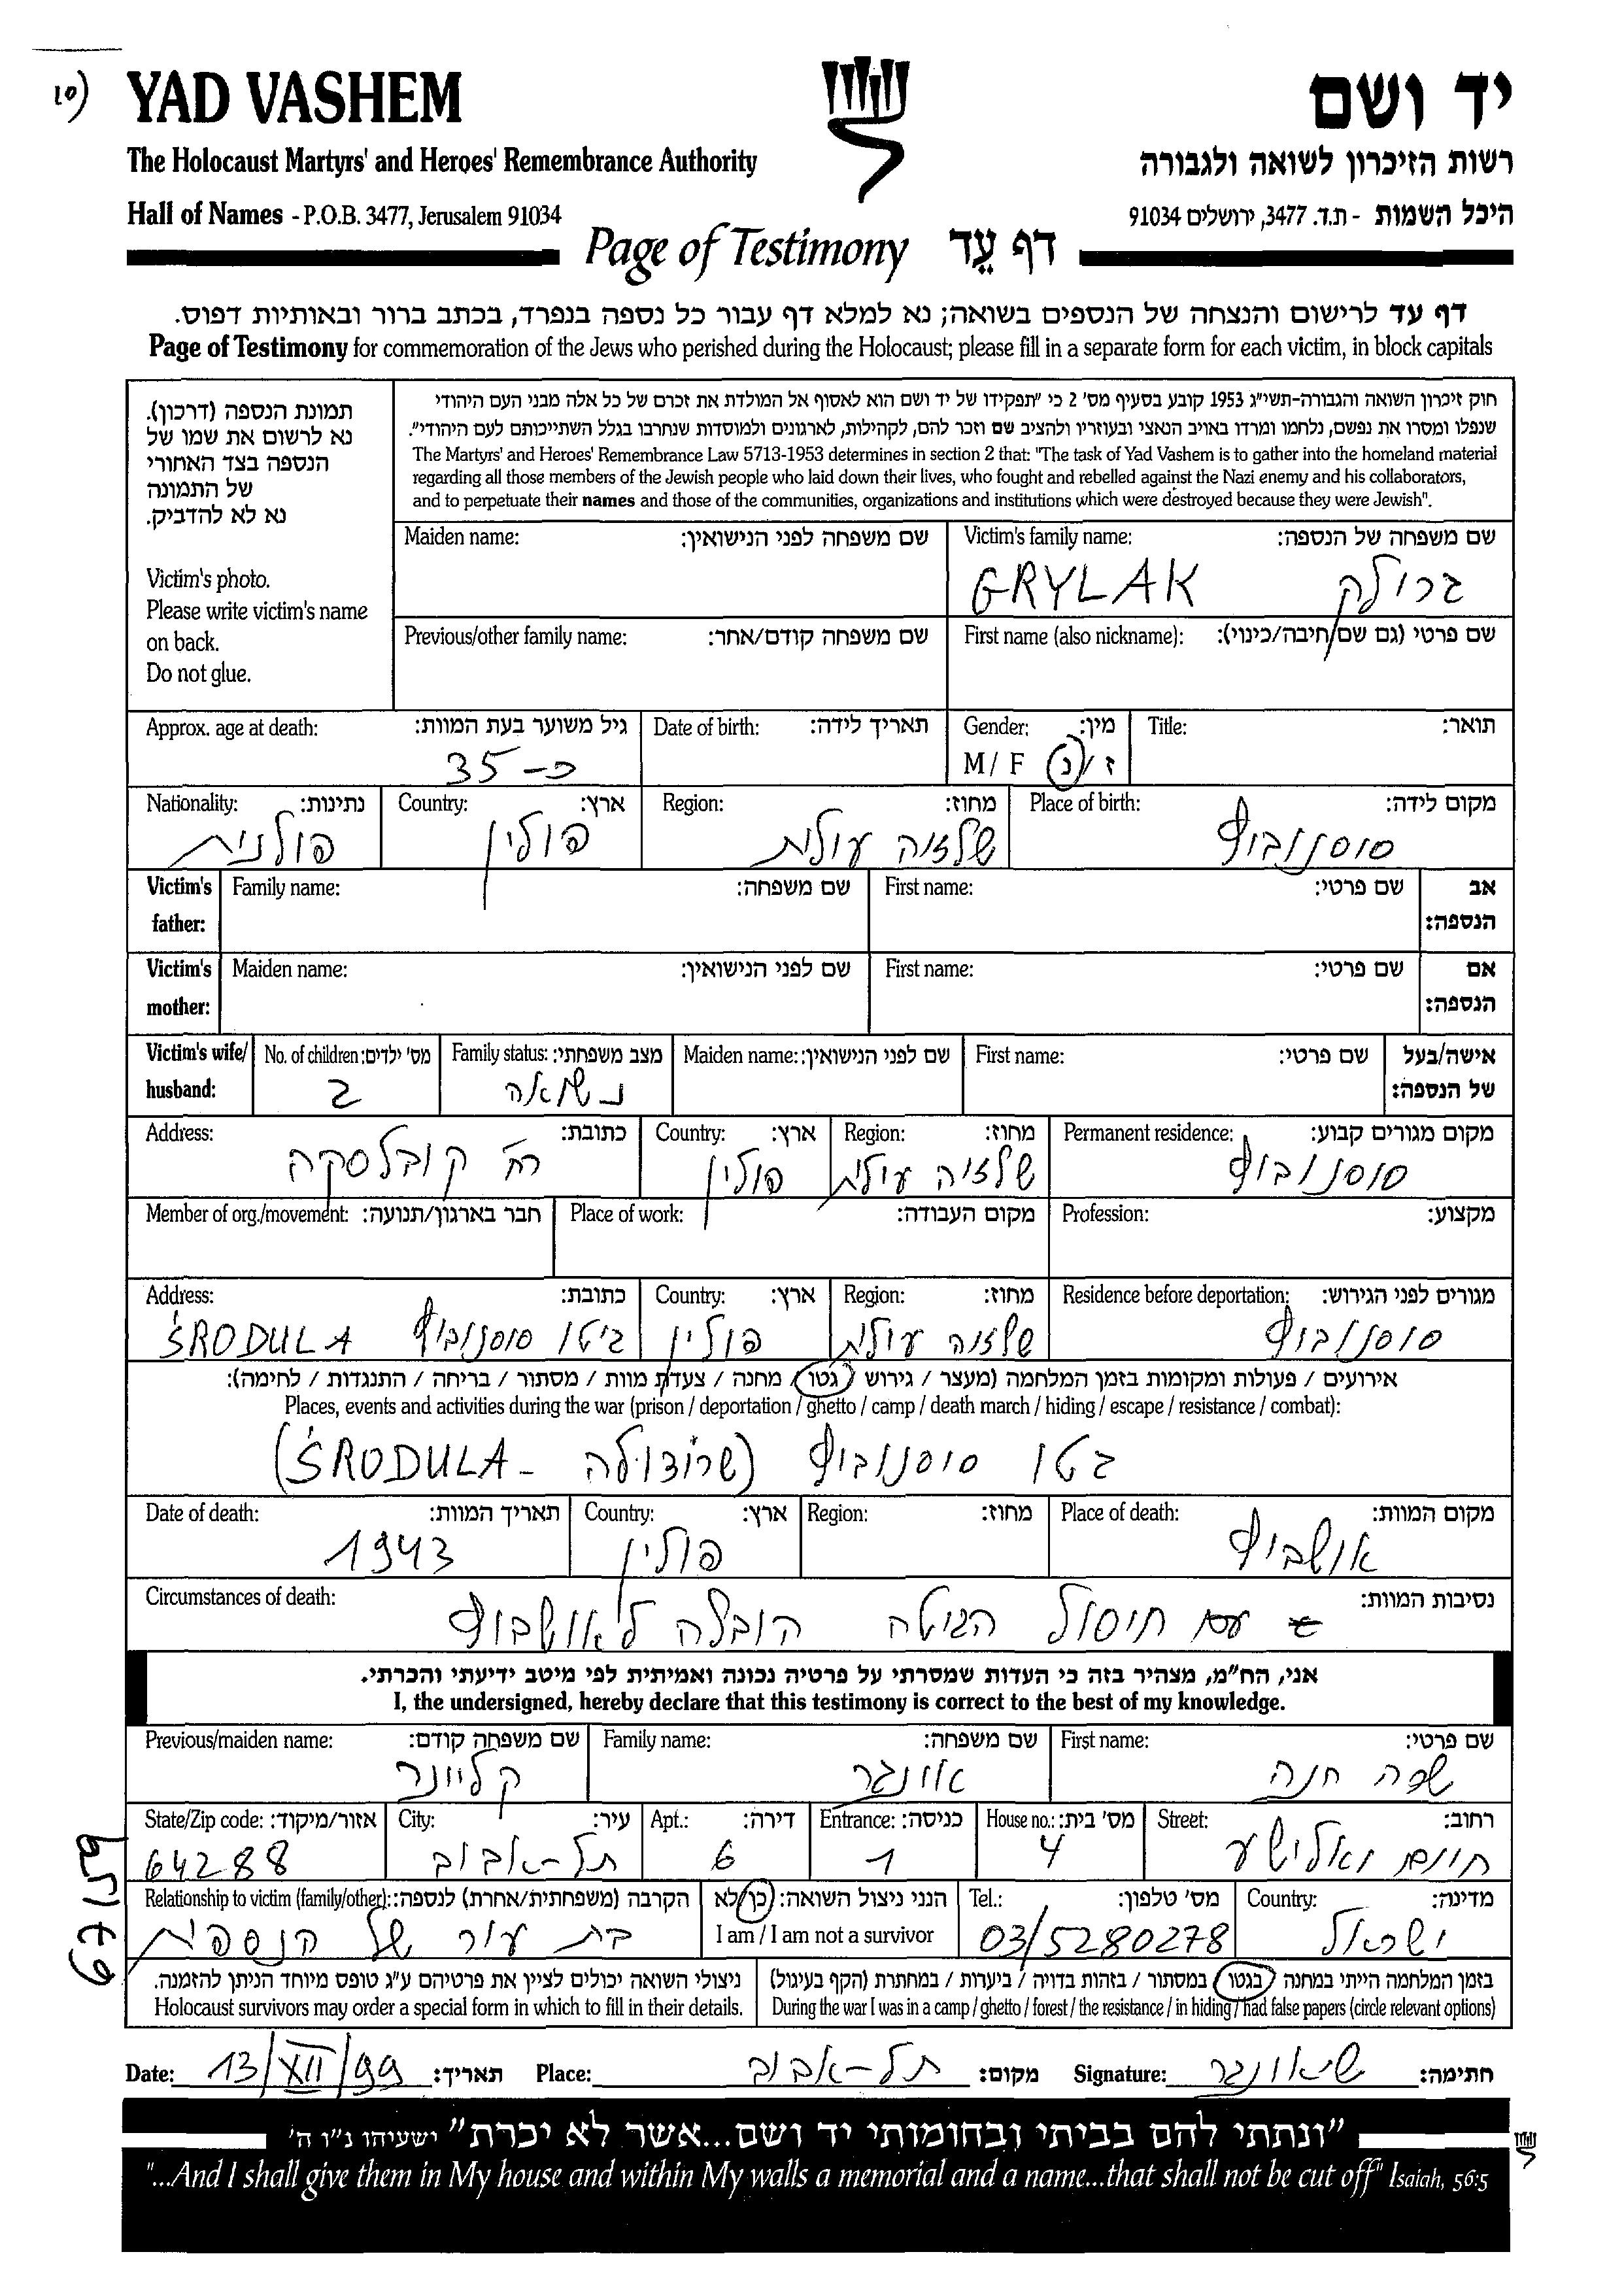 10)
YAD VASHEM
יד ושם
The Holocaust Martyrs' and Heroes' Remembrance Authority
רשות הזיכרון לשואה ולגבורה
Hall of Names - P.O.B. 3477, Jerusalem 91034
היכל השמות - ת.ד. 3477, ירושלים 91034
Page of Testimony דף עֵד
דף עד לרישום והנצחה של הנספים בשואה; נא למלא דף עבור כל נספה בנפרד, בכתב ברור ובאותיות דפוס.
Page of Testimony for commemoration of the Jews who perished during the Holocaust; please fill in a separate form for each victim, in block capitals
תמונת הנספה (דרכון).
נא לרשום את שמו של
הנספה בצד האחורי
של התמונה
נא לא להדביק.
Victim's photo.
Please write victim's name
on back.
Do not glue.
חוק זיכרון השואה והגבורה-תשי"ג 1953 קובע בסעיף מס' 2 כי "תפקידו של יד ושם הוא לאסוף אל המולדת את זכרם של כל אלה מבני העם היהודי
שנפלו ומסרו את נפשם, נלחמו ומרדו באויב הנאצי ובעוזריו ולהציב שם וזכר להם, לקהילות, לארגונים ולמוסדות שנחרבו בגלל השתייכותם לעם היהודי".
The Martyrs' and Heroes' Remembrance Law 5713-1953 determines in section 2 that: "The task of Yad Vashem is to gather into the homeland material
regarding all those members of the Jewish people who laid down their lives, who fought and rebelled against the Nazi enemy and his collaborators,
and to perpetuate their names and those of the communities, organizations and institutions which were destroyed because they were Jewish".
Maiden name: שם משפחה לפני הנישואין:
Victim's family name: שם משפחה של הנספה:
GRYLAK גרילק
Previous/other family name: שם משפחה קודם/אחר:
First name (also nickname): שם פרטי (גם שם חיבה/כינוי):
Approx. age at death: גיל משוער בעת המוות:
כ-35
Date of birth: תאריך לידה:
Gender: מין:
M / F ז / נ
Title: תואר:
Nationality: נתינות:
פולנית
Country: ארץ:
פולין
Region: מחוז:
שלזיה עילית
Place of birth: מקום לידה:
סוסנוביץ
Victim's father: Family name: שם משפחה: First name: שם פרטי: אב הנספה:
Victim's mother: Maiden name: שם לפני הנישואין: First name: שם פרטי: אם הנספה:
Victim's wife/ husband: No. of children: מס' ילדים: Family status: מצב משפחתי: Maiden name: שם לפני הנישואין: First name: שם פרטי: אישה/בעל של הנספה:
2 נשואה
Address: כתובת: Country: ארץ: Region: מחוז: Permanent residence: מקום מגורים קבוע:
רח' קובלסקה פולין שלזיה עילית סוסנוביץ
Member of org./movement: חבר בארגון/תנועה: Place of work: מקום העבודה: Profession: מקצוע:
Address: כתובת: Country: ארץ: Region: מחוז: Residence before deportation: מגורים לפני הגירוש:
ŚRODULA גיטו סוסנוביץ פולין שלזיה עילית סוסנוביץ
אירועים / פעולות ומקומות בזמן המלחמה (מעצר / גירוש / גטו / מחנה / צעדת מוות / מסתור / בריחה / התנגדות / לחימה):
Places, events and activities during the war (prison / deportation / ghetto / camp / death march / hiding / escape / resistance / combat):
גטו סוסנוביץ (שרודולה - ŚRODULA)
Date of death: תאריך המוות: Country: ארץ: Region: מחוז: Place of death: מקום המוות:
1943 פולין אושביץ
Circumstances of death: נסיבות המוות:
עם חיסול הגיטו הובלה לאושביץ
אני, הח"מ, מצהיר בזה כי העדות שמסרתי על פרטיה נכונה ואמיתית לפי מיטב ידיעתי והכרתי.
I, the undersigned, hereby declare that this testimony is correct to the best of my knowledge.
Previous/maiden name: שם משפחה קודם: Family name: שם משפחה: First name: שם פרטי:
קליינר אונגר שרה חנה
State/Zip code: אזור/מיקוד: City: עיר: Apt.: דירה: Entrance: כניסה: House no.: מס' בית: Street: רחוב:
64288 תל-אביב 6 1 4 חיים ואלישע
Relationship to victim (family/other): הקרבה (משפחתית/אחרת) לנספה: הנני ניצול השואה: כן/לא Tel.: מס' טלפון: Country: מדינה:
I am / I am not a survivor
בת עיר של הנספית 03/5280278 ישראל
ניצולי השואה יכולים לציין את פרטיהם ע"ג טופס מיוחד הניתן להזמנה.
Holocaust survivors may order a special form in which to fill in their details.
בזמן המלחמה הייתי במחנה / בגטו / במסתור / בזהות בדויה / ביערות / במחתרת (הקף בעיגול)
During the war I was in a camp / ghetto / forest / the resistance / in hiding / had false papers (circle relevant options)
Date: 13/XII/99 תאריך: Place: תל-אביב מקום: Signature: ש אונגר חתימה:
"ונתתי להם בביתי ובחומותי יד ושם...אשר לא יכרת" ישעיהו נ"ו ה'
"...And I shall give them in My house and within My walls a memorial and a name...that shall not be cut off" Isaiah, 56:5